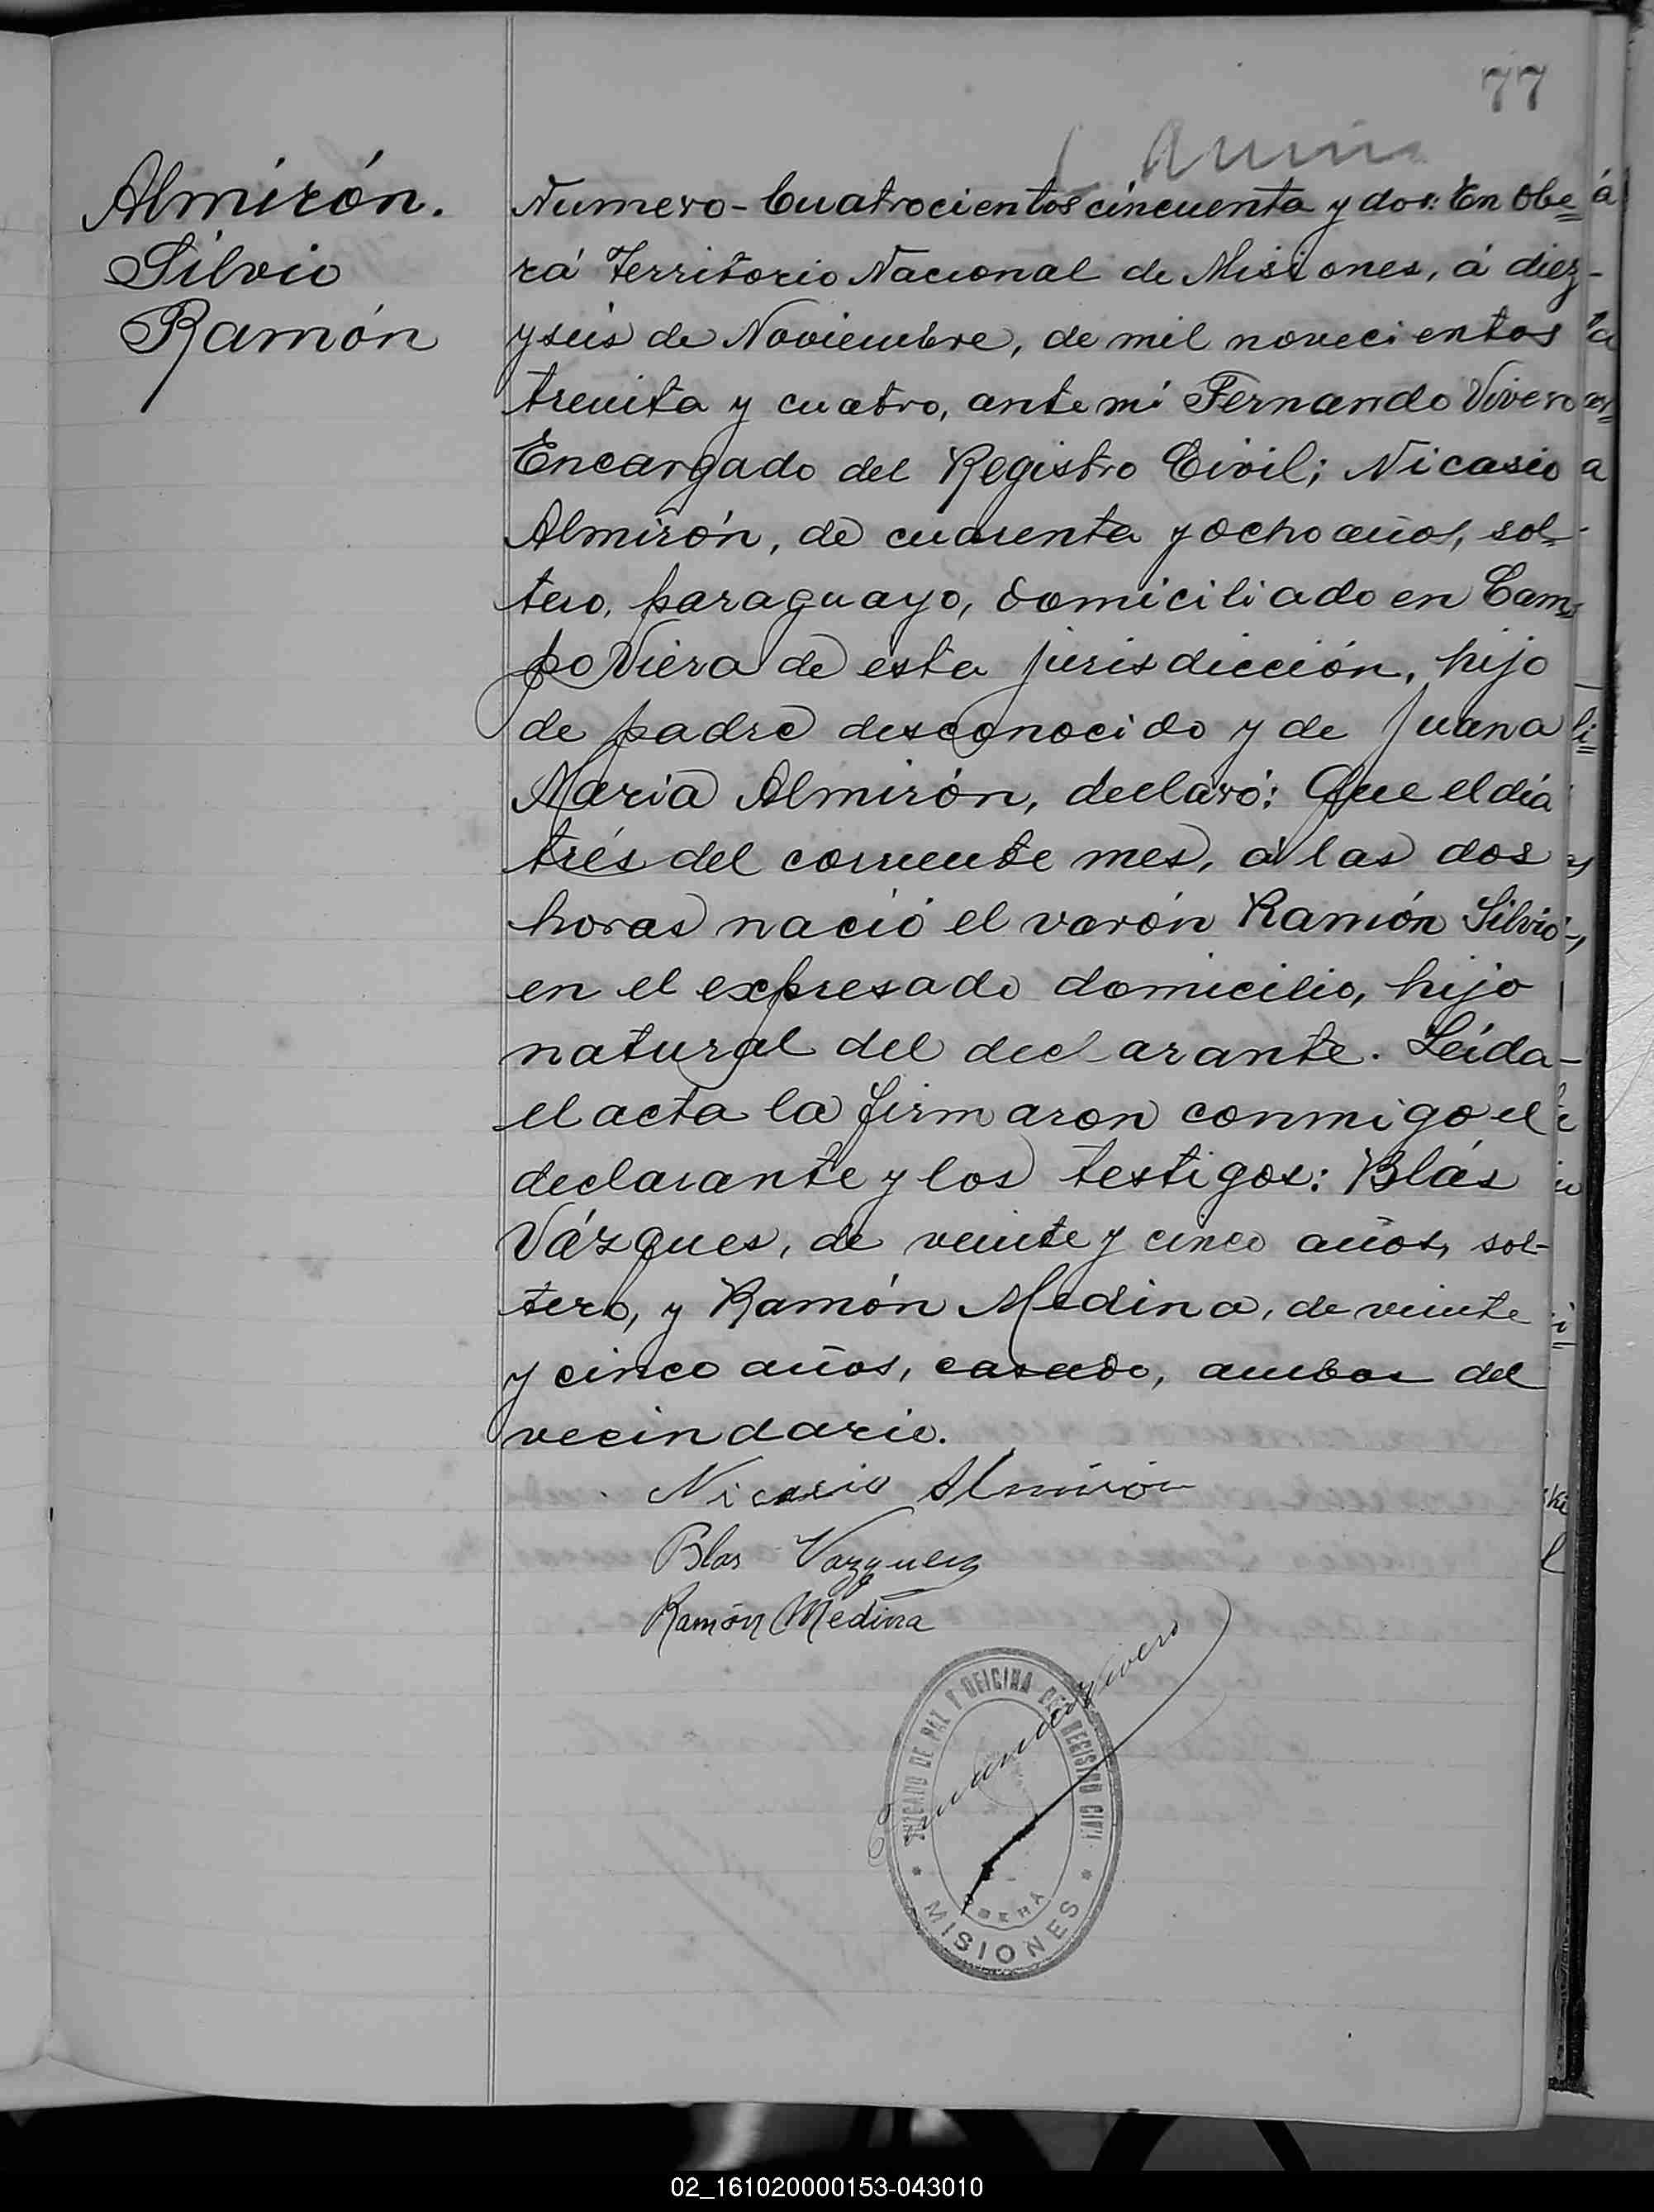 77
Almirón.
Silvio
Ramón
Numero-Cuatrocientos cincuenta y dos: En Obe=
rá Territorio Nacional de Misiones, á diez-
y seis de Noviembre, de mil novecientos
treinta y cuatro, ante mí Fernando Vivero
Encargado del Registro Civil; Nicasio
Almirón, de cuarenta y ocho años, sol-
tero, paraguayo, domiciliado en Cam=
po Viera de esta jurisdicción, hijo
de padre desconocido y de Juana
María Almirón, declaró: Que el día
trés del corriente mes, á las dos
horas nació el varón Ramón Silvio,
en el expresado domicilio, hijo
natural del declarante. Leída-
el acta la firmaron conmigo el
declarante y los testigos: Blás
Vázques, de veinte y cinco años, sol-
tero, y Ramón Medina, de veinte
y cinco años, casado, ambos del
vecindario.
Nicasio Almirón
Blas Vazquez
Ramón Medina
Fernando Vivero
JUZGADO DE PAZ Y OFICINA DEL REGISTRO CIVIL
OBERÁ
* MISIONES *
02_161020000153-043010